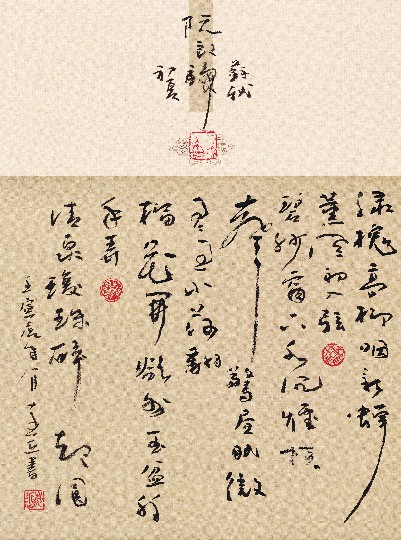 蘇軾
阮郎歸
初夏
綠槐高柳咽新蟬
薰風初入弦
碧紗窗下水沉煙棋
聲驚晝眠微
雨過小荷翻
榴花開欲然玉盆纖
手弄
清泉瓊珠碎卻圓
壬寅年八月書